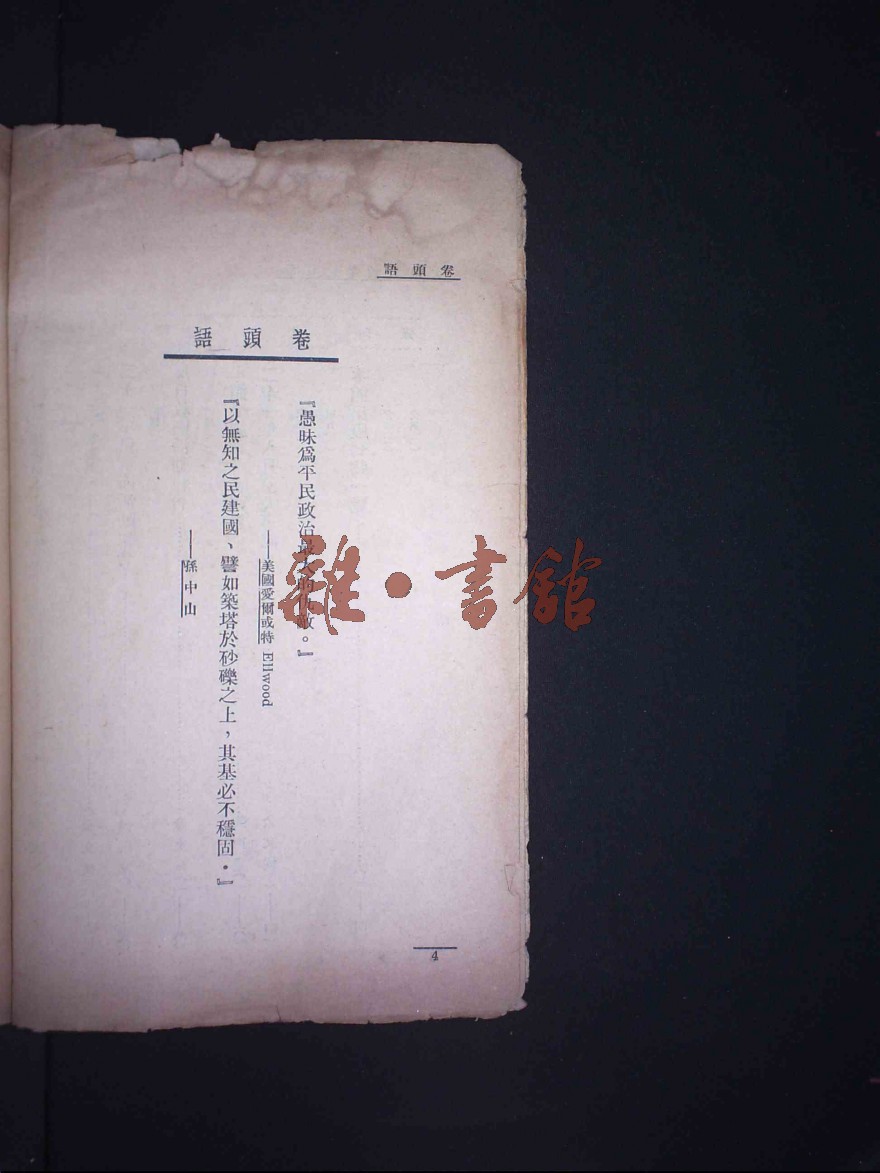 卷頭語
卷頭語
『愚昧爲平民政治最大的仇敵。』
——美國愛爾或特 Ellwood
『以無知之民建國、譬如築塔於砂礫之上，其基必不穩固．』
——孫中山
4
雜·書館